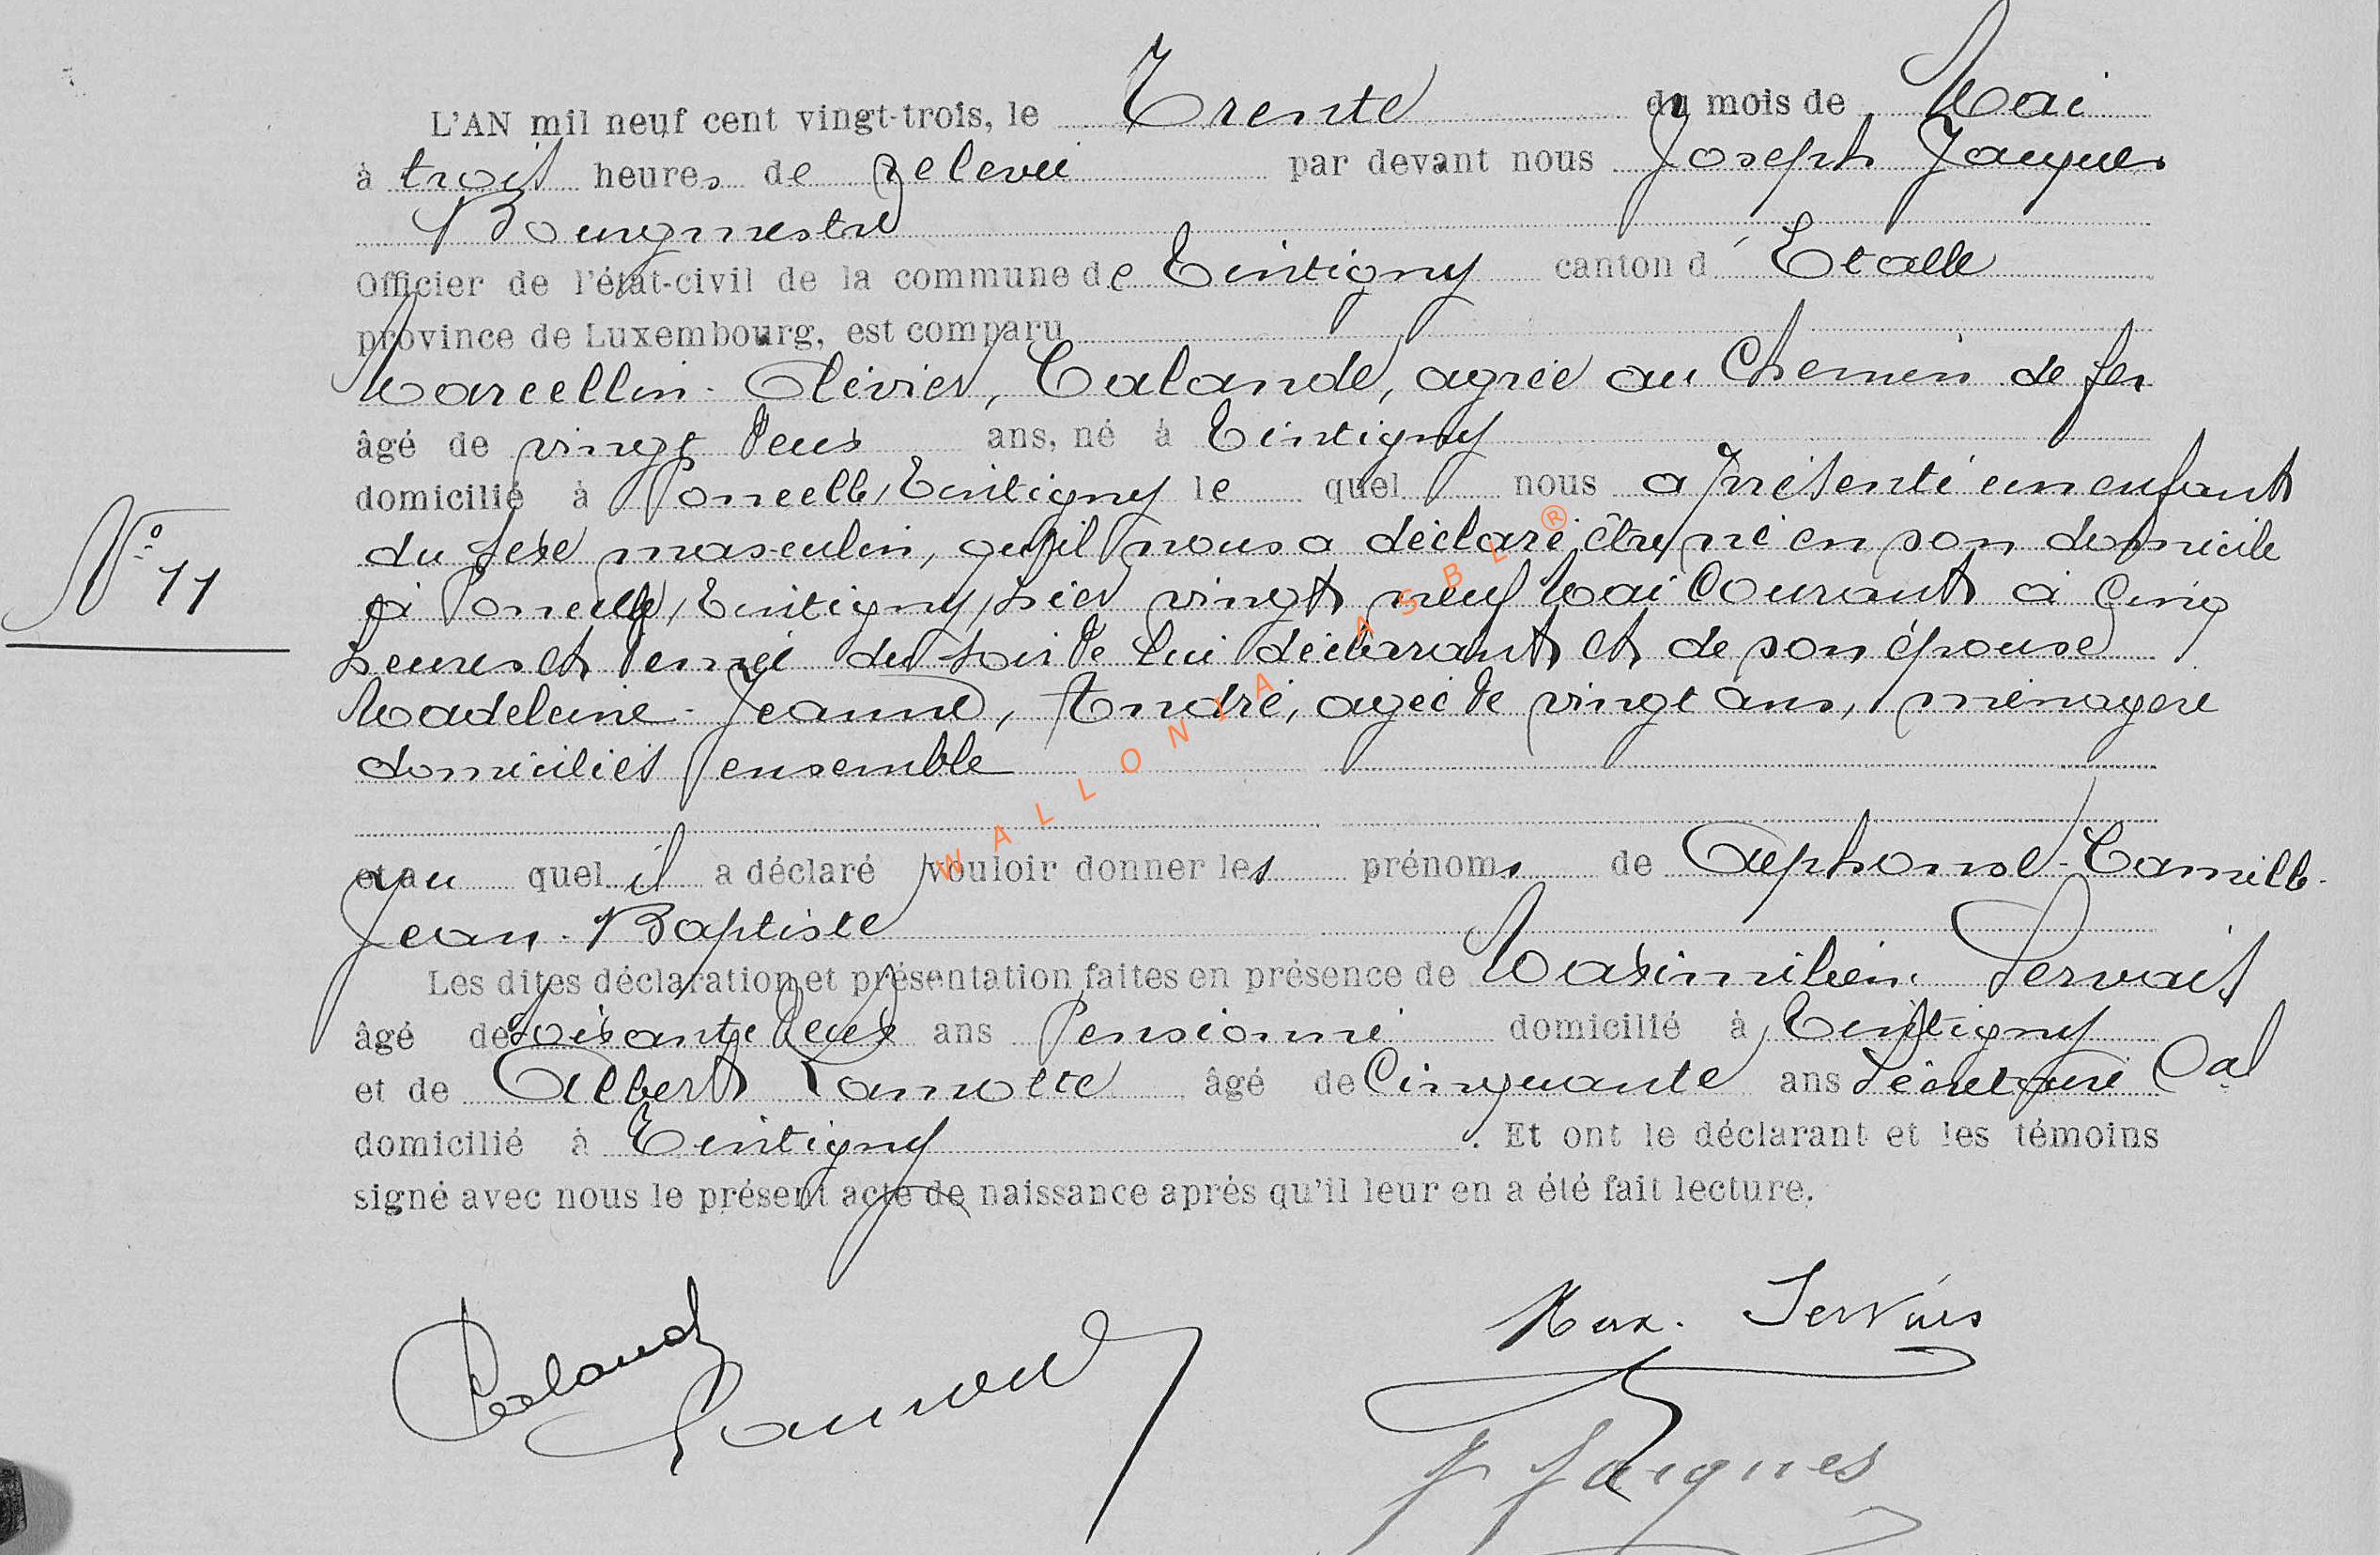 L'AN mil neuf cent vingt-trois, le Trente du mois de Mai
à trois heures de relevée par devant nous Joseph Jacques
Bourgmestre
Officier de l'état-civil de la commune de Tintigny canton d' Etalle
province de Luxembourg, est comparu
Marcellin-Olivier, Calande, agréé au Chemin de fer
âgé de vingt deux ans, né à Tintigny
domicilié à Poncelle, Tintigny le quel nous a présenté un enfant
du sexe masculin, qu'il nous a déclaré être né en son domicile
à Poncelle, Tintigny, hier vingt neuf Mai Courant à Cinq
heures et demie du soir de lui déclarant et de son épouse
Madeleine-Jeanne, André, agée de vingt ans, ménagere
domiciliés ensemble
et au quel il a déclaré vouloir donner les prénoms de Alphonse-Camille-
Jean-Baptiste
Les dites déclaration et présentation faites en présence de Maximilien Servais
âgé de soixante deux ans Pensionné domicilié à Tintigny
et de Albert Lamotte âgé de Cinquante ans Secrétaire Cal
domicilié à Tintigny . Et ont le déclarant et les témoins
signé avec nous le présent acte de naissance après qu'il leur en a été fait lecture.
N° 11
Calande
Max. Servais
J Jacques
WALLONIA ASBL ®